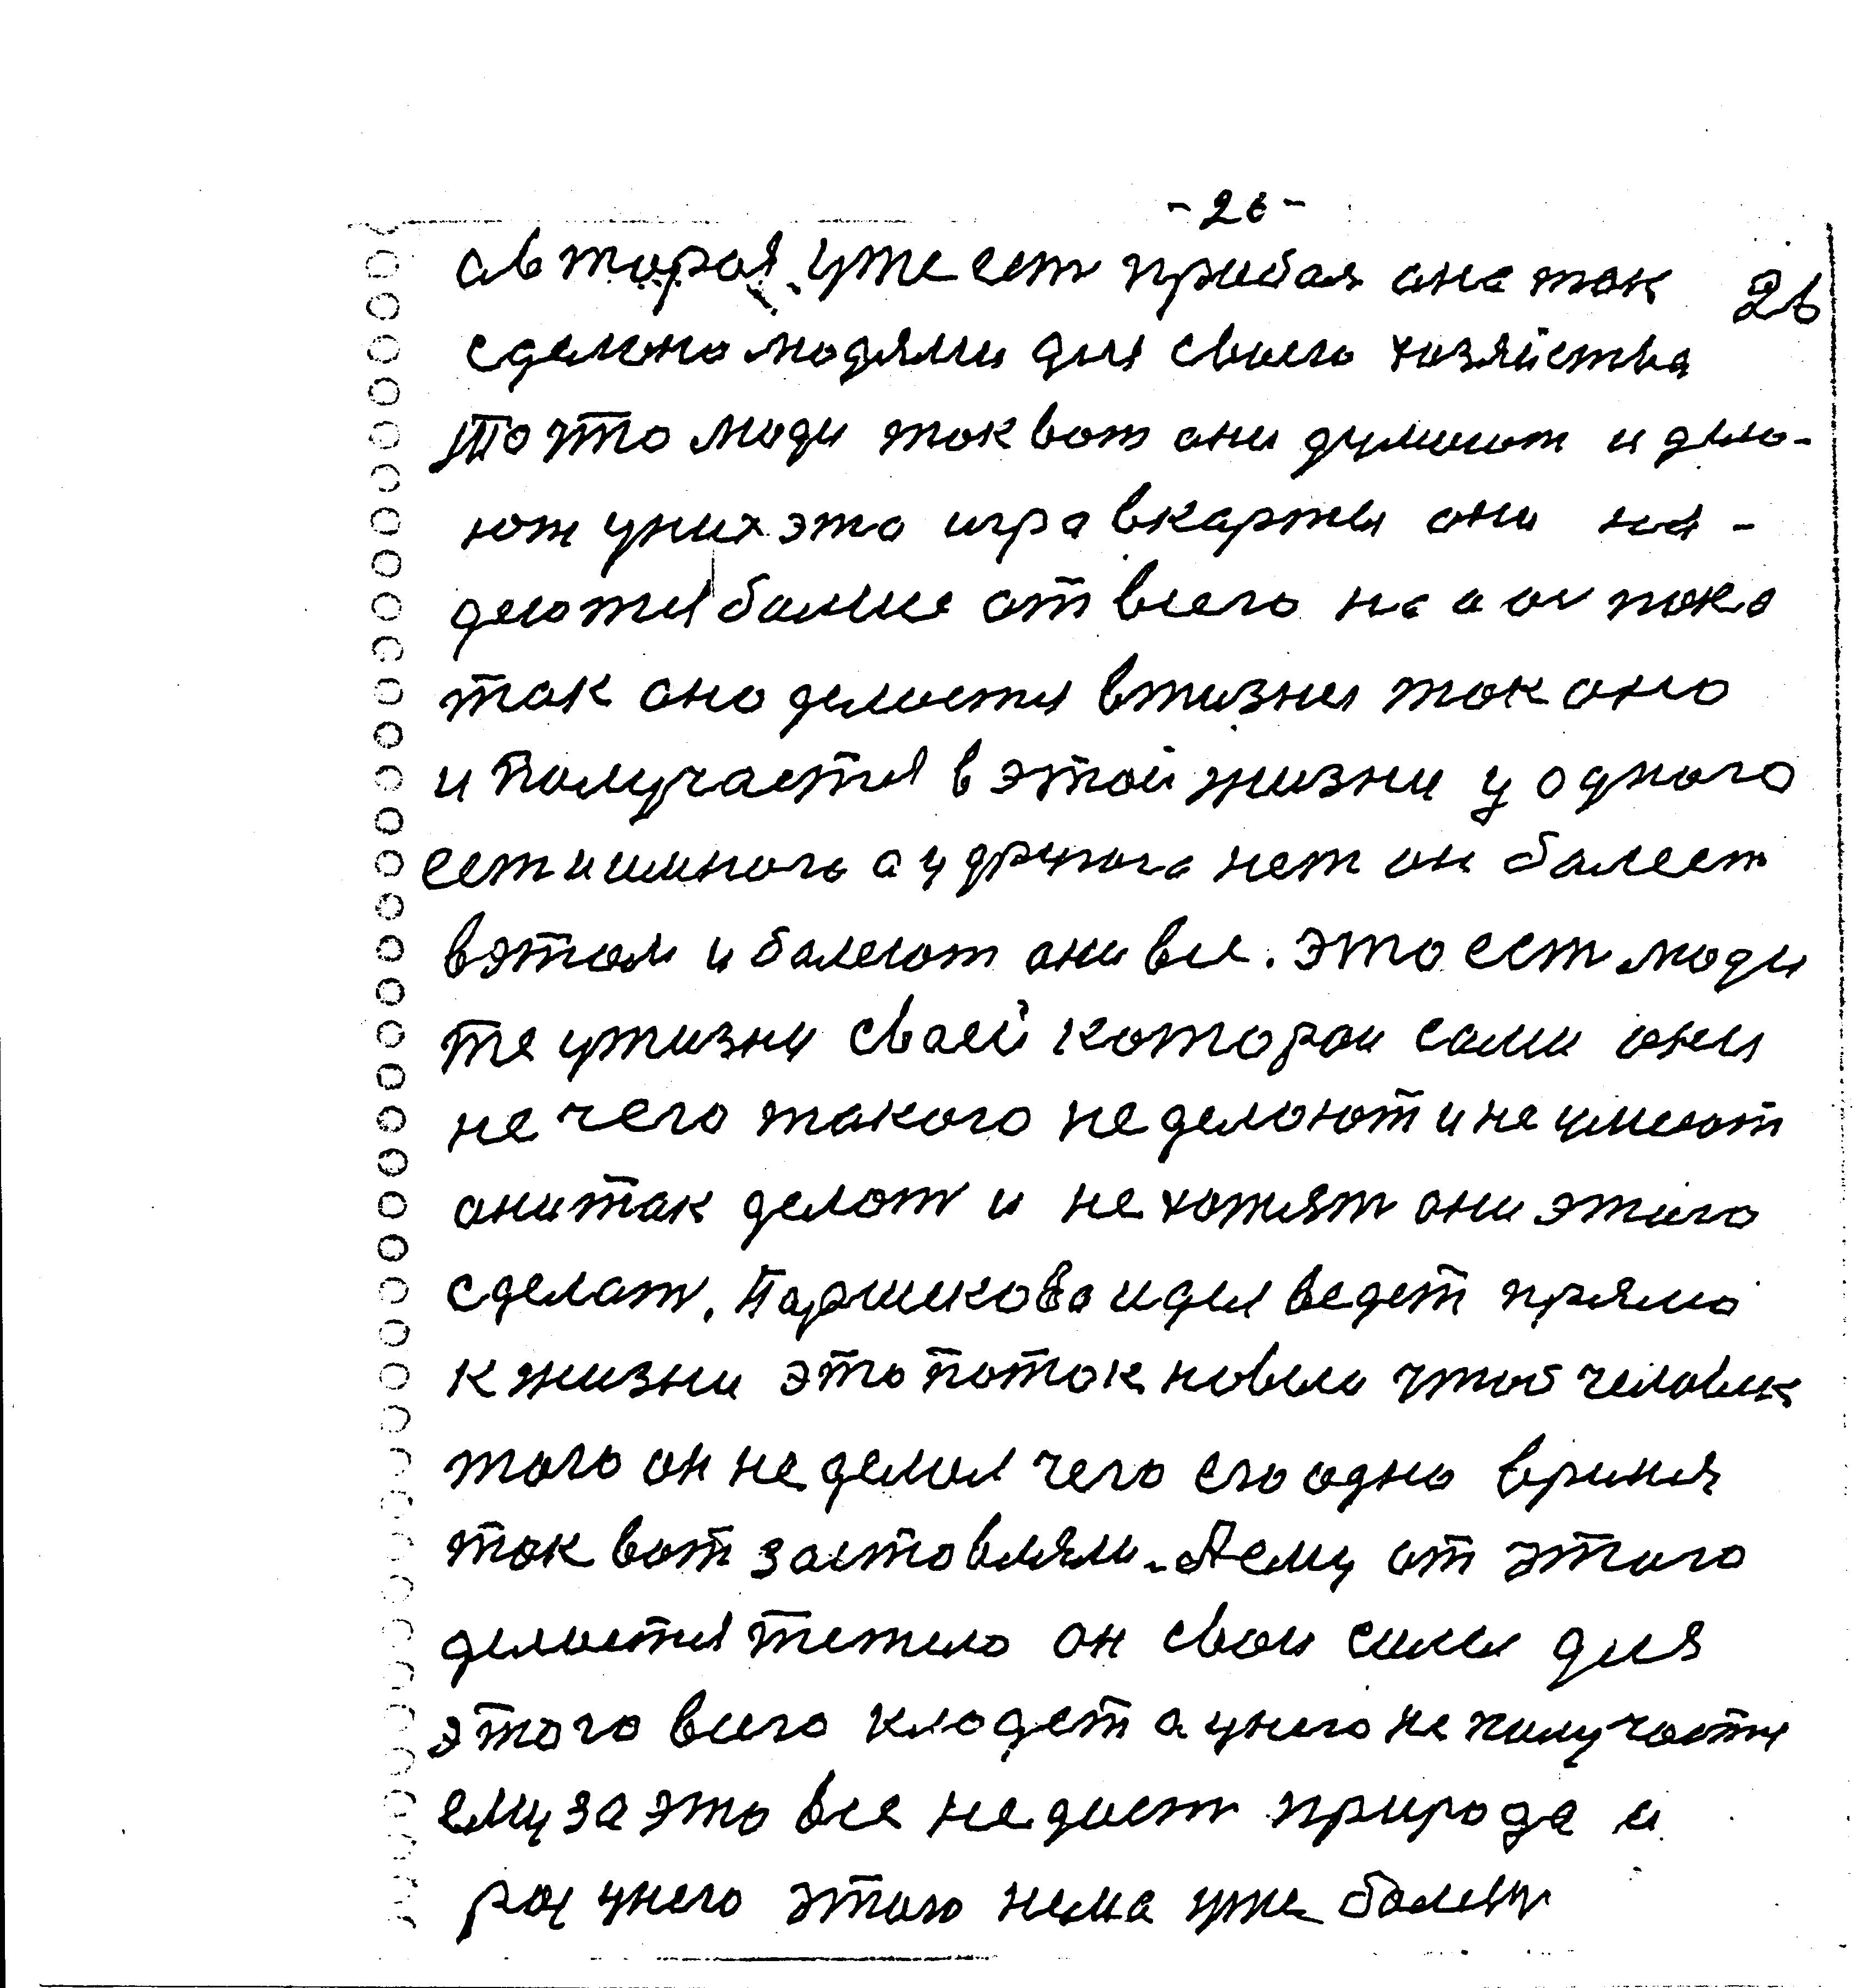 -26-
а вторая уже ест прибая она так
26
сделоно людями для своего хозяйства
То что люди ток вот они думоют и дело-
ют у них это игра в карты они на-
деются болше от всего но а он пока
так оно делоется в жизни ток оно
и получается в этой жизни у одного
ест и имного а у другога нет он болеет
в этом и болеют они все. это ест люди
те у жизни своей которои сами они
не чего такого не делоют и не умеют
они так делот и не хотят они этого
сделат. Паршикова идея ведет прямо
к жизни это поток новыи чтоб человек
того он не делол чего его одно время
ток вот застовляли. А ему от этого
делоется тежело он свои силы для
этого всего кладет а у него не получоется
ему за это все не дает природа и
раз у него этого нема уже болезн